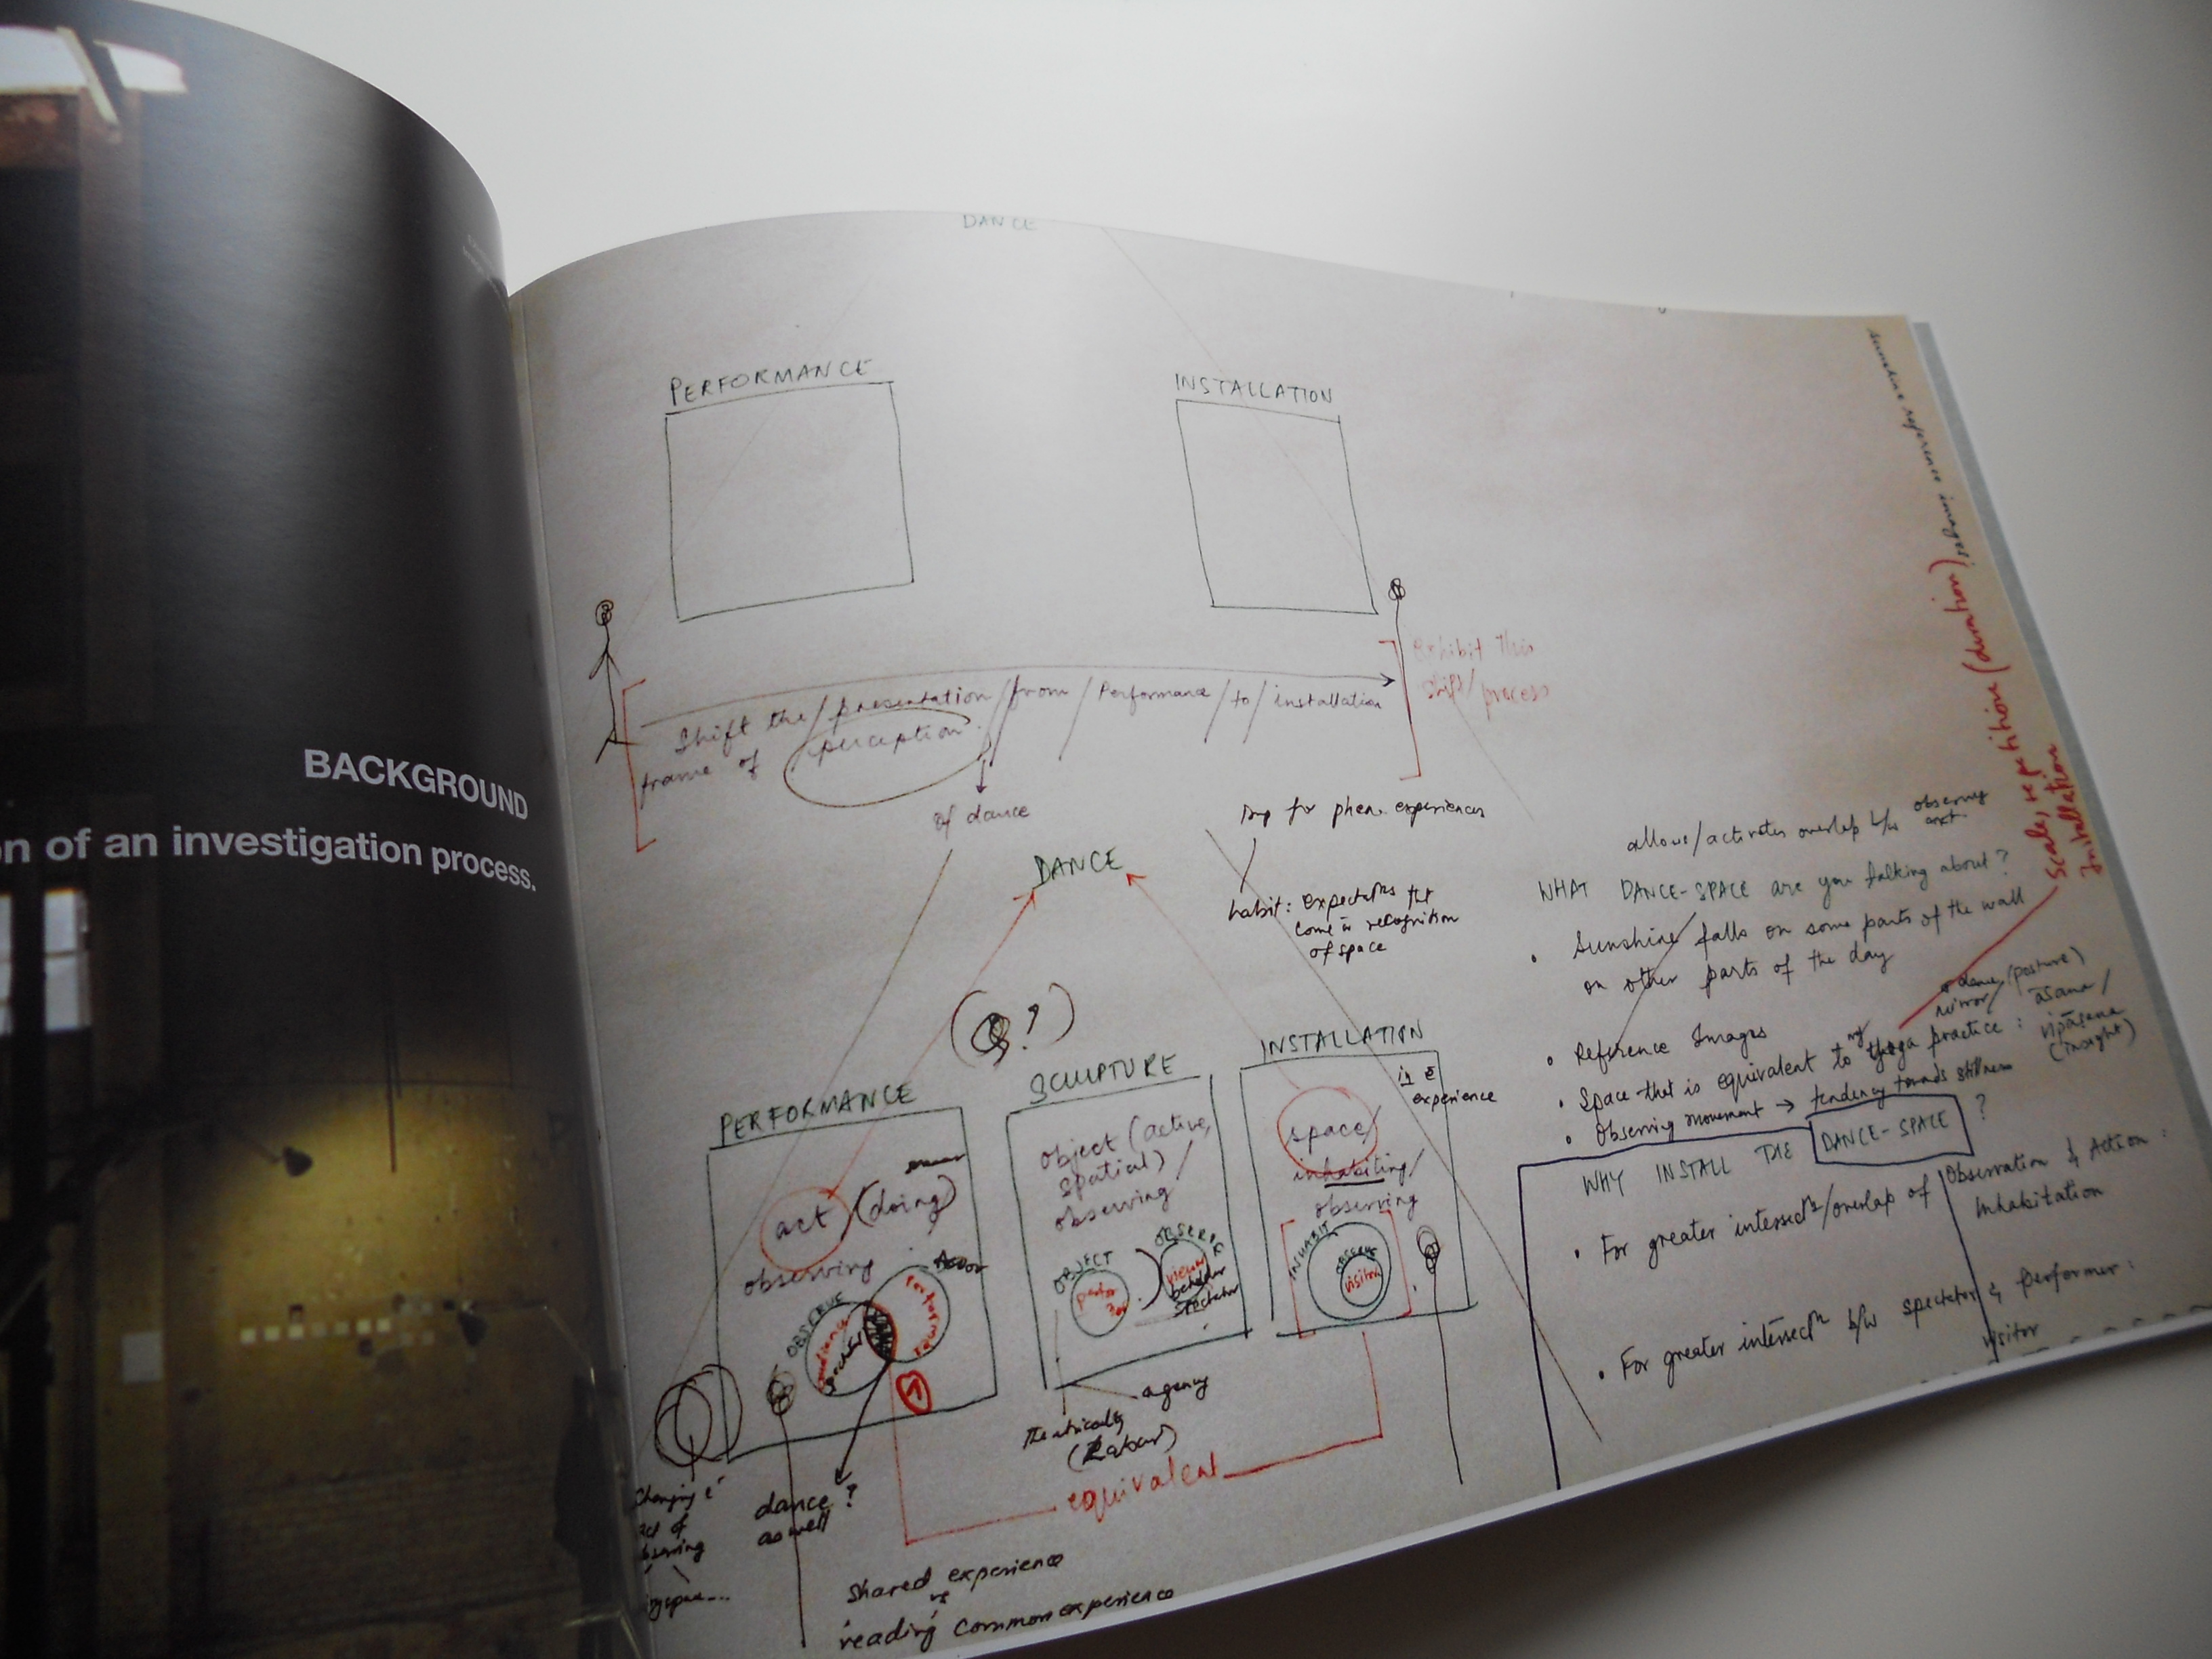 BACKGROUND
on of an investigation process.
DANCE
PERFORMANCE
INSTALLATION
Exhibit this
shift/process
Shift the/presentation/from/Performance/to/installation
frame of perception
of dance
for phen. experiences
habit: expectatns tht
come in recognition
of space
DANCE
(?)
PERFORMANCE
act (doing)
observing
OBSERVE
audience
spectator
performer
Actor
dance?
as well
SCULPTURE
object (active,
spatial)/
observing
OBJECT
OBSERVE
viewer
beholder
spectator
agency
Theatricality
(Labour)
INSTALLATION
in
experience
space/
inhabiting/
observing
INHABIT
OBSERVE
visitor
equivalent
Changing
act of
observing
Shared experience
vs
reading common experience
allows/activates overlap b/w observing
WHAT DANCE-SPACE are you talking about?
• Sunshine falls on some parts of the wall
on other parts of the day
• Reference Images
• Space that is equivalent to my yoga practice:
dance/(posture)
mirror/ āsana/
vipāsana
(insight)
• Observing movement → tendency towards stillness
WHY INSTALL THE DANCE-SPACE?
• For greater intersectn/overlap of Observation & Action:
Inhabitation
• For greater intersectn b/w spectator & performer:
visitor
Scale, repetition (duration)
Installation